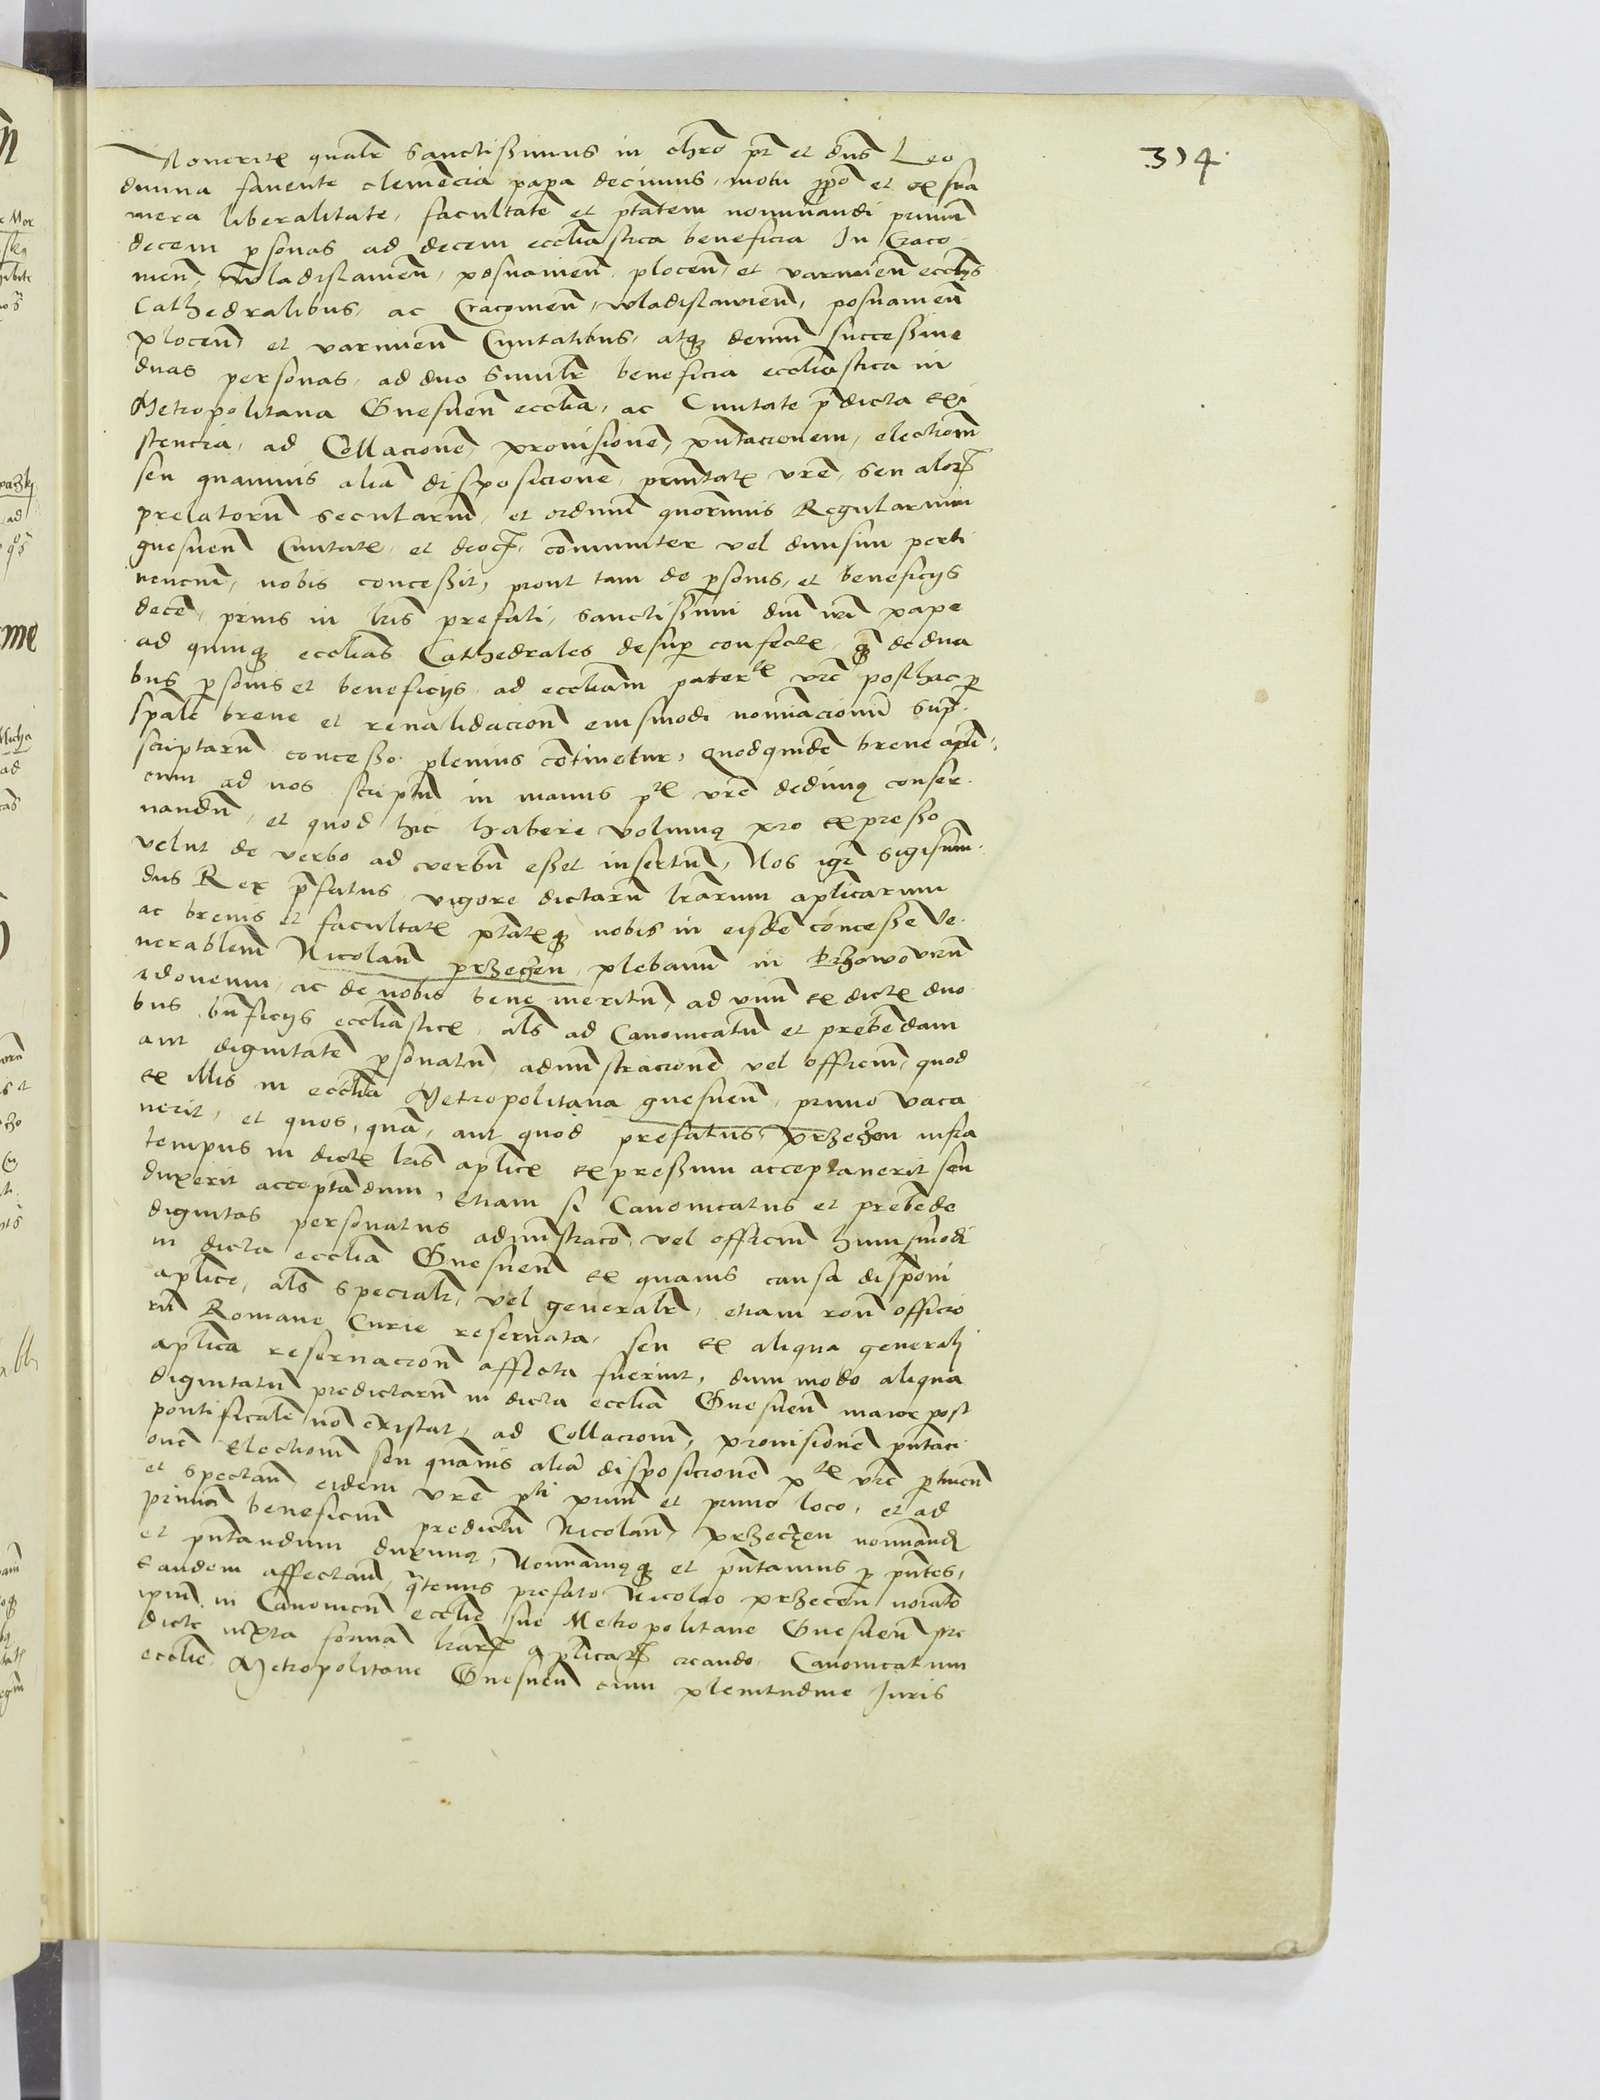 314
Noverit{is} qualr Sanctissimus in chro pr et dns Leo
divina favente clemencia papa decimus, motu ppo et ex sua
mera liberalitate, facultate et ptatem nominandi primu
decem psonas ad decem eccliastica beneficia In Craco
vien, Wladislavien, posnanien, plocen, et varmien ecclijs
Cathedralibus, ac Cracovien, wladislavien, posnanien
plocen, et varmien Civitatibus, atq3 demu successive
duas personas, ad duo similr beneficia eccliastica in
Metropolitana Gnesnen ecclia, ac Civitate pdicta exi
stencia, ad Collacione, provisione, pntacionem, electiom
seu quamvis alia disposicione, prnitatis vre, seu alior
prelatoru seculariu, et ordinu quorumvis Regularium
gnesnen Civitatis, et dioc, communiter vel divisim perti
nenciu, nobis concessit, prout tam de psonis, et beneficijs
dece, prius in lris prefati, Sanctissimi dni nri pape
ad quinq3 ecclias Cathedrales desup confectis, q3 de dua
bus psonis et beneficijs, ad eccliam pater vre posthac p
spale breve et revalidacion eiusmodi nominacionu sup
scriptaru concesso plenius cotinetur, quodquide breve apli
cum ad nos scriptu in manus p vre dedimus conser
vandu, et quod hic habere volumus pro expresso
velut de verbo ad verbu esset insertu, Nos igr Sigismun
dus Rex pfatus vigore dictaru lrarum aplicarum
ac brevis et facultatis ptatisq3 nobis in eisde concesse Ve
nerablem Nicolau przeczen, plebanu in
idoneum, ac de nobis bene meritu, ad unu ex dictis duo
bus bnficijs eccliasticis, als ad Canonicatu et prebendam
aut dignitate psonatu, administracione vel officiu, quod
ex illis in ecclia Metropolitana gnesnen, primo vaca
verit, et quos, qua, aut quod prefatus, przeczen infra
tempus in dictis lris aplicis expressum acceptaverit seu
duxerit acceptandum, etiam si Canonicatus et prebede
dignitas personatus administraco, vel officiu huiusmodi
in dicta ecclia Gnesnen ex quavis causa disponi
aplice, als specialr, vel generalr, etiam ron officio
ru Romane Curie reservata, seu ex aliqua generali
aplica reservacion affecta fuerint, dum modo aliqua
dignitatu predictaru in dicta ecclia Gnesnen maior post
pontificale no existat, ad Collaciom, provisione pntaci
one electiom seu quavis alia disposicione p vre ptinen
et spectan eidem vre pti primu et primo loco, et ad
primu beneficiu predictu Nicolau, przeczen nominand
et pntandum duximus, Nominamusq3 et pntamus p pntes,
eandem affectan, qtenus prefato Nicolao przeczen noiato
ipsum in Canonicu ecclie sue Metropolitane Gnesnen pre
dicte iuxta forma lrar aplicar creando Canonicatum
ecclie Metropolitane Gnesnen cum plenitudine Juris